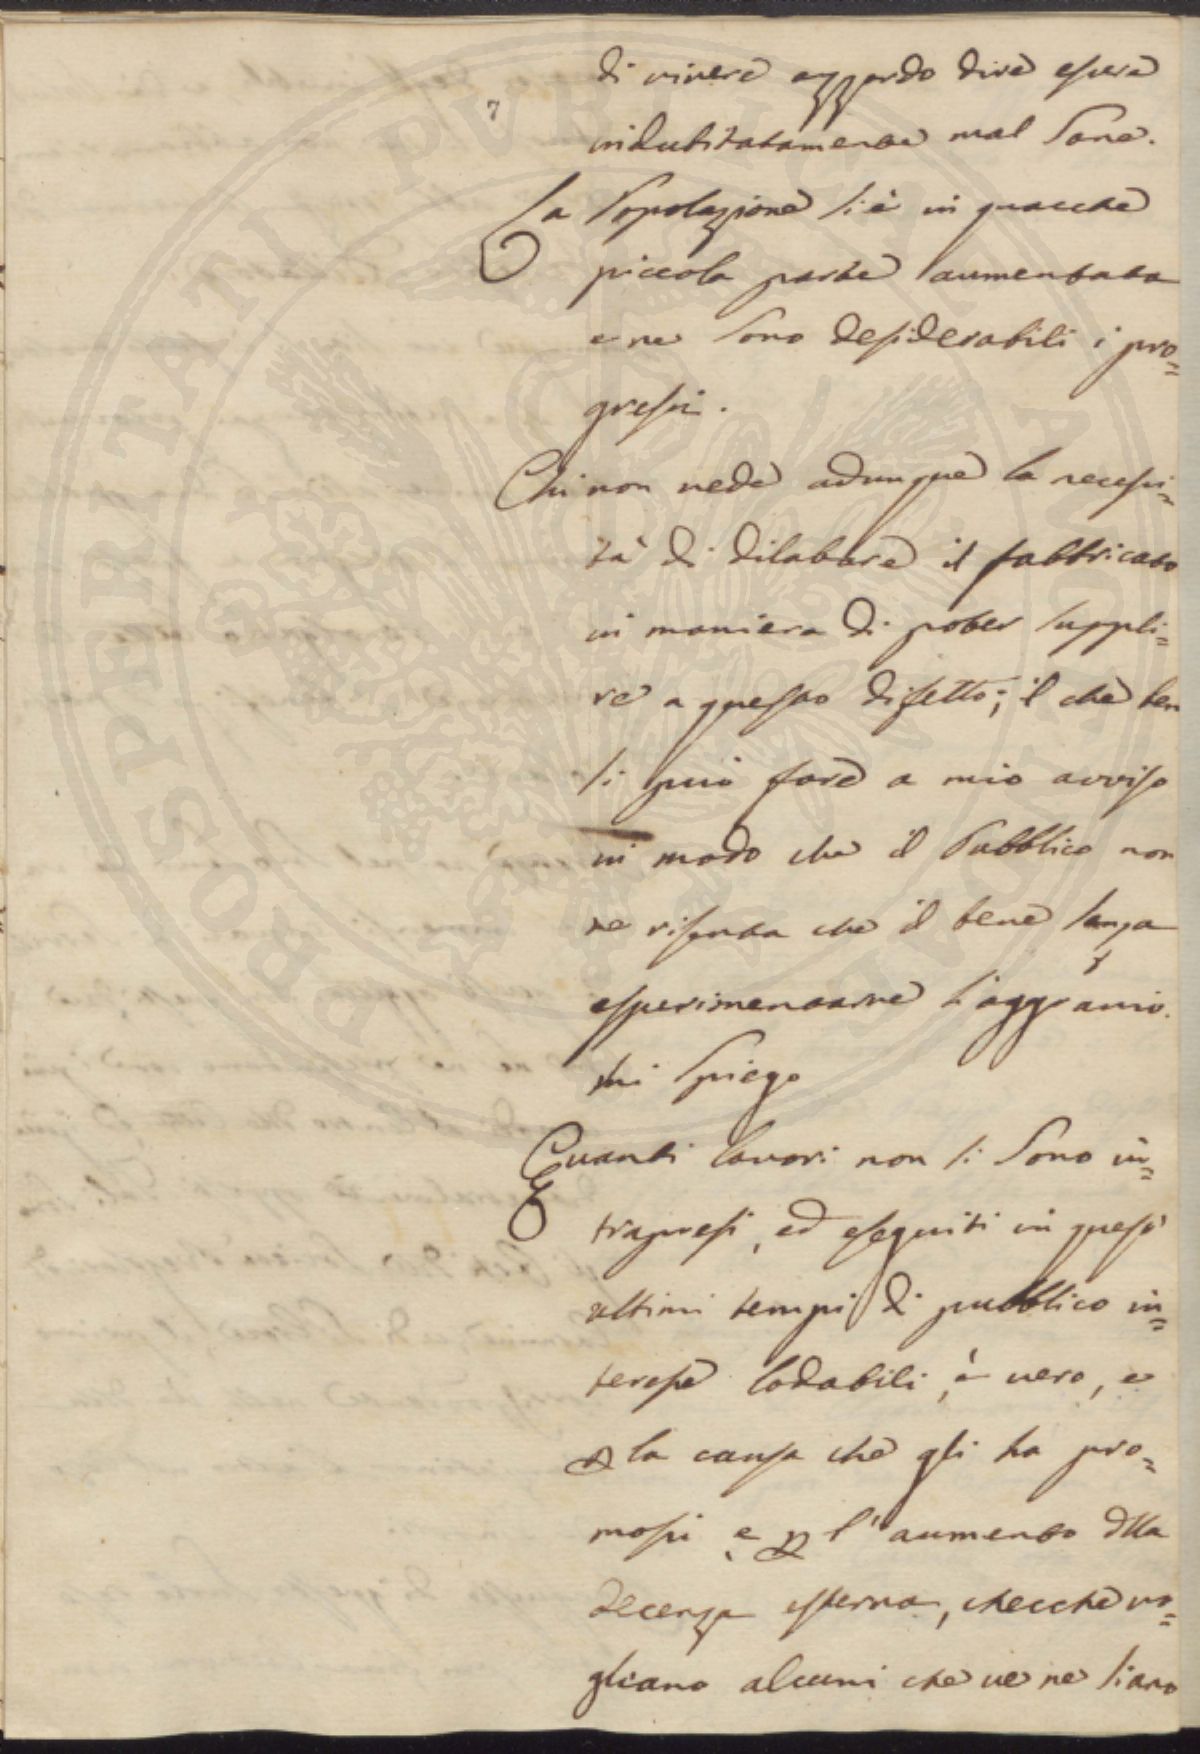 7
di vivere azzardo dire essere
indubitatamente mal sane.
La Popolazione si è in qualche
piccola parte aumentata
e ne sono desiderabili i pro=
gressi.
Chi non vede adunque la necessi=
tà di dilatare il fabbricato
in maniera di poter suppli=
re a questo difetto; il che ben
si può fare a mio avviso
in modo che il Pubblico non
ne risenta che il bene sanza
esperimentarne l'aggravio.
Mi spiego
Quanti lavori non si sono in=
trapresi, ed eseguiti in quest'
ultimi tempi di pubblico in=
teresse lodabili, è vero, e
la causa che gli ha pro=
mossi e l'aumento dlla
decenza esterna, checche vo=
gliano alcuni che ve ne siano
PROSPERITATI PVBLICAE AVGENDAE